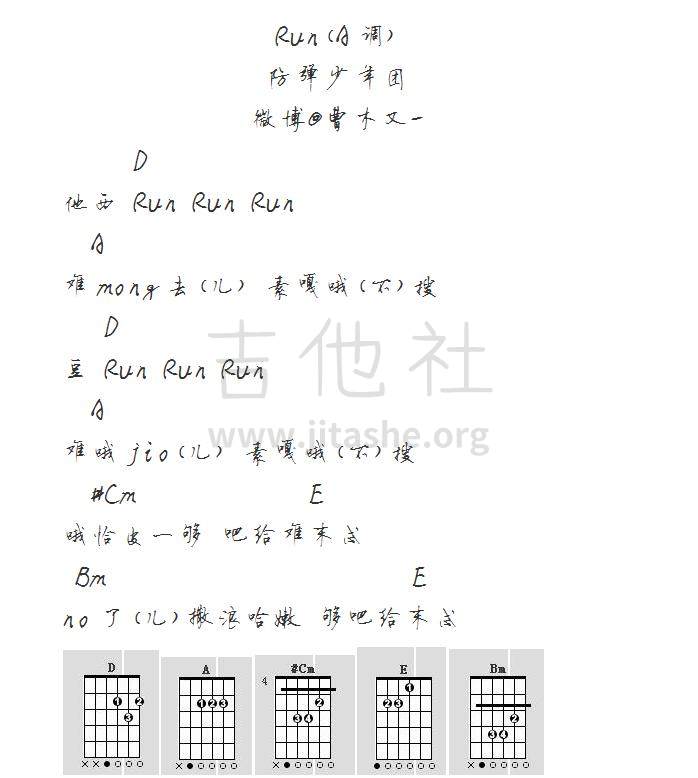 Run(A调)
防弹少年团
微博@曹木又一
D
他西 Run Run Run
A
难mong去(儿) 素嘎哦(不)搜
D
豆 Run Run Run
A
难哦jio(儿) 素嘎哦(不)搜
#Cm E
哦恰皮一够 吧给难末尝
Bm E
no了(儿)撒浪哈嫩 够吧给末尝
吉他社
www.jitashe.org
D A #Cm E Bm
4
1 2 3
1 2 3
2 3 4
1 2 3
2 3 4